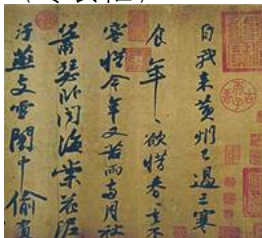 自我来黄州已過三寒
食年〻欲惜春〻去不
容惜今年又苦雨兩月秋
蕭瑟卧聞海棠花泥
汙燕支雪闇中偷負